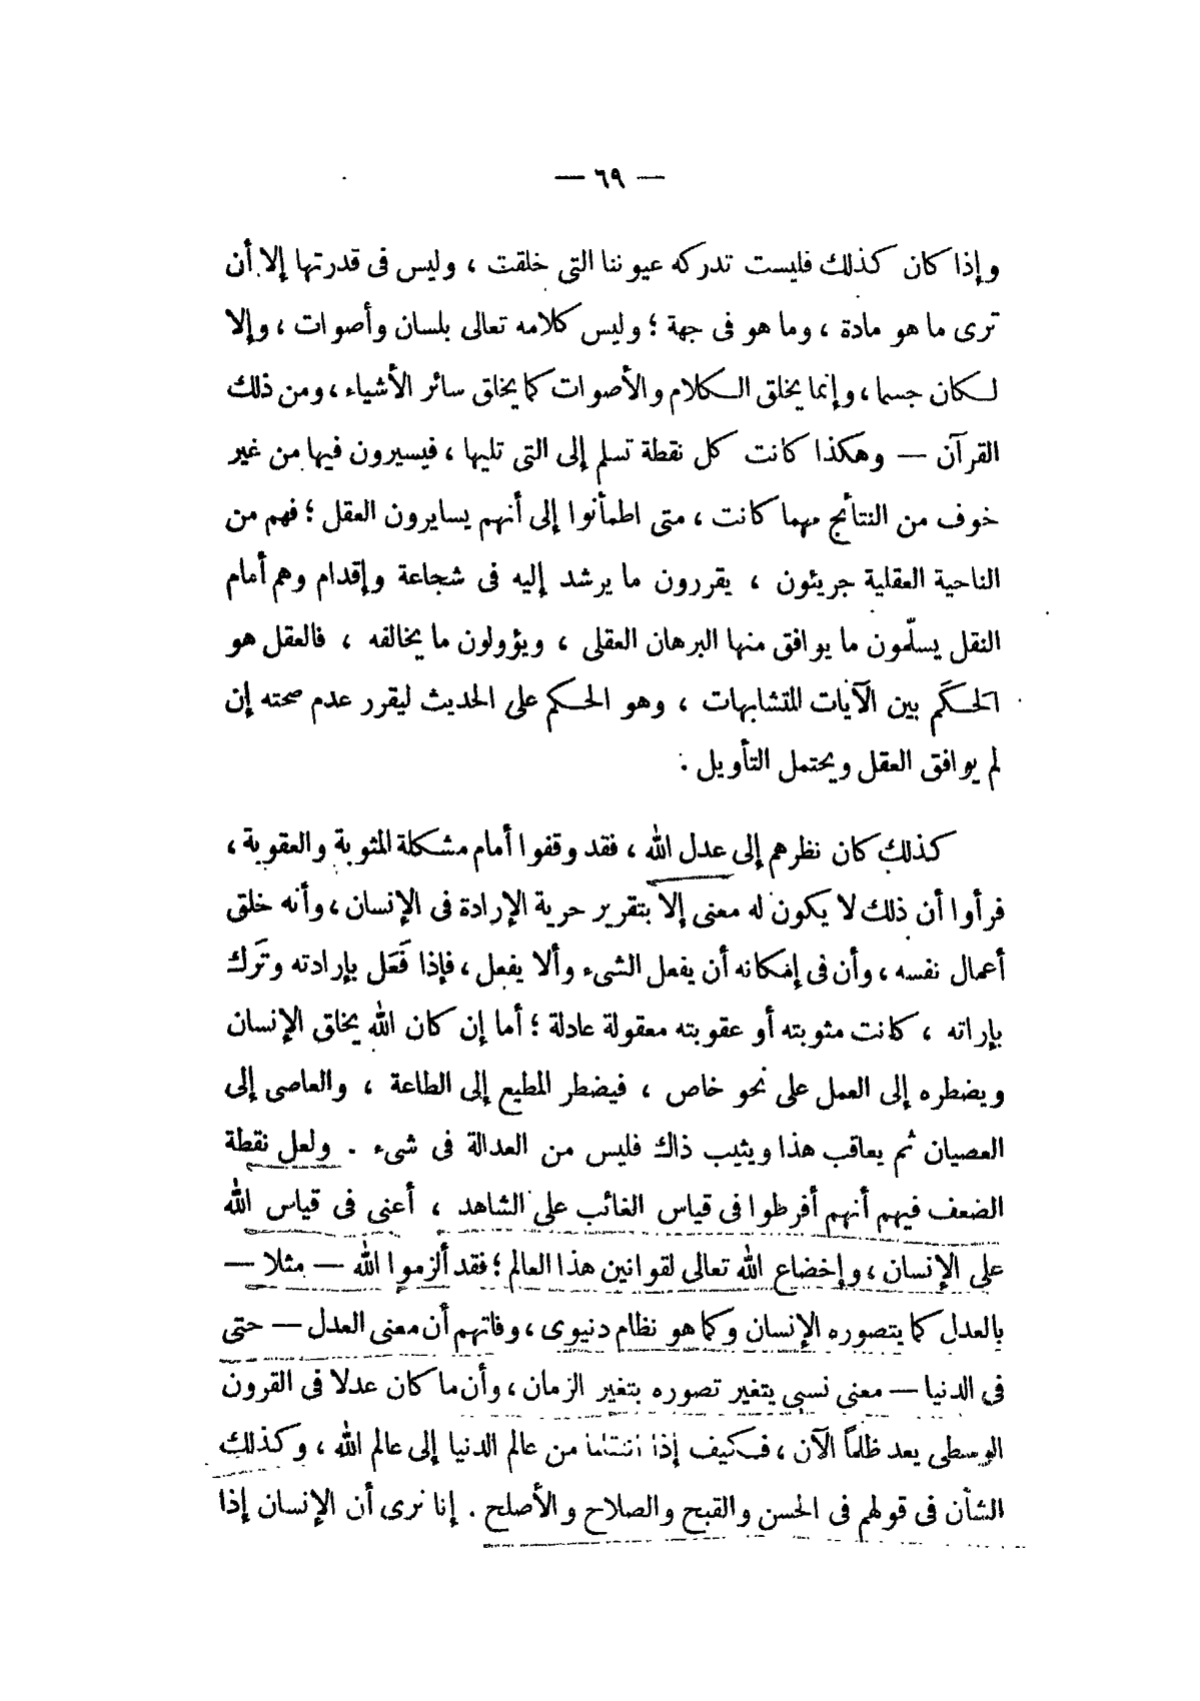 — ٦٩ —
وإذا كان كذلك فليست تدركه عيوننا التى خلقت ، وليس فى قدرتها إلا أن
ترى ما هو مادة ، وما هو فى جهة ؛ وليس كلامه تعالى بلسان وأصوات ، وإلا
لكان جسما ، وإنما يخلق الكلام والأصوات كما يخلق سائر الأشياء ، ومن ذلك
القرآن — وهكذا كانت كل نقطة تسلم إلى التى تليها ، فيسيرون فيها من غير
خوف من النتائج مهما كانت ، متى اطمأنوا إلى أنهم يسايرون العقل ؛ فهم من
الناحية العقلية جريئون ، يقررون ما يرشد إليه فى شجاعة وإقدام وهم أمام
النقل يسلّمون ما يوافق منها البرهان العقلى ، ويؤولون ما يخالفه ، فالعقل هو
الحكَم بين الآيات المتشابهات ، وهو الحكم على الحديث ليقرر عدم صحته إن
لم يوافق العقل ويحتمل التأويل .
كذلك كان نظرهم إلى عدل الله ، فقد وقفوا أمام مشكلة المثوبة والعقوبة ،
فرأوا أن ذلك لا يكون له معنى إلا بتقرير حرية الإرادة فى الإنسان ، وأنه خلق
أعمال نفسه ، وأن فى إمكانه أن يفعل الشىء وألا يفعل ، فإذا فَعَل بإرادته وتَرك
بإراته ، كانت مثوبته أو عقوبته معقولة عادلة ؛ أما إن كان الله يخلق الإنسان
ويضطره إلى العمل على نحو خاص ، فيضطر المطيع إلى الطاعة ، والعاصى إلى
العصيان ثم يعاقب هذا ويثيب ذاك فليس من العدالة فى شىء . ولعل نقطة
الضعف فيهم أنهم أفرطوا فى قياس الغائب على الشاهد ، أعنى فى قياس الله
على الإنسان ، وإخضاع الله تعالى لقوانين هذا العالم ؛ فقد ألزموا الله — مثلا —
بالعدل كما يتصوره الإنسان وكما هو نظام دنيوى ، وفاتهم أن معنى العدل — حتى
فى الدنيا — معنى نسبى يتغير تصوره بتغير الزمان ، وأن ما كان عدلا فى القرون
الوسطى يعد ظلماً الآن ، فكيف إذا انتقلنا من عالم الدنيا إلى عالم الله ، وكذلك
الشأن فى قولهم فى الحسن والقبح والصلاح والأصلح . إنا نرى أن الإنسان إذا